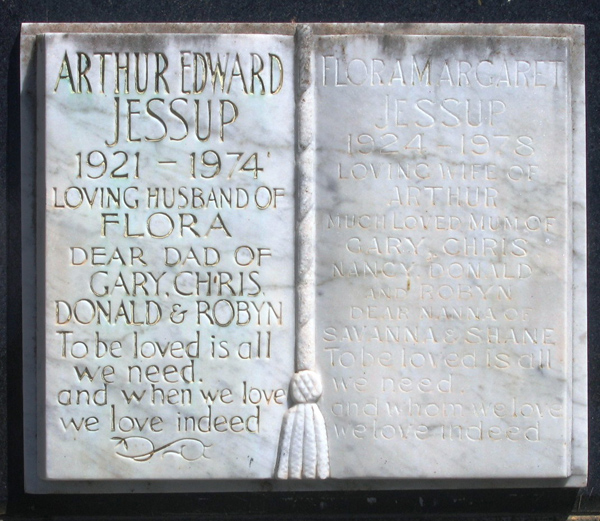 ARTHUR EDWARD
JESSUP
1921 – 1974
LOVING HUSBAND OF
FLORA
DEAR DAD OF
GARY, CHRIS,
DONALD & ROBYN
To be loved is all
we need.
and when we love
we love indeed
FLORA MARGARET
JESSUP
1924 – 1978
LOVING WIFE OF
ARTHUR
MUCH LOVED MUM OF
GARY, CHRIS
NANCY, DONALD
AND ROBYN
DEAR NANNA OF
SAVANNA & SHANE
To be loved is all
we need.
and whom we love
we love indeed